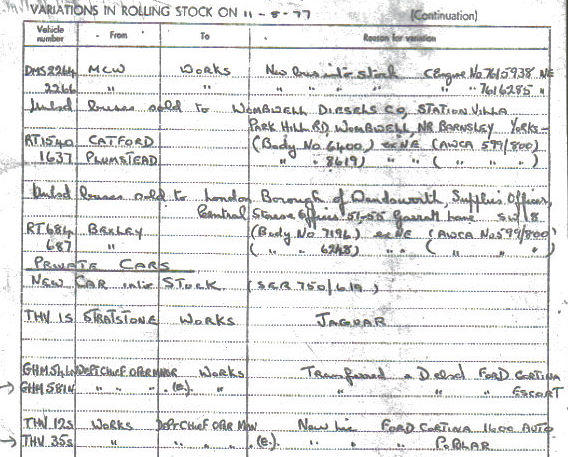 VARIATIONS IN ROLLING STOCK ON 11-8-77 (Continuation)
Vehicle number From To Reason for variation
DMS2264 MCW WORKS New bus into stock (Engine No. 7615938 NE
2266 " " " " " " " " 7616285 "
sold to WOMBWELL DIESELS CO, STATION VILLA
PARK HILL RD WOMBWELL, NR BARNSLEY YORKS -
RT1540 CATFORD (Body No 6400) ex NE (AWCA 599/800)
1637 PLUMSTEAD ( " " 8619) " " ( " " " )
buses sold to London Borough of Wandsworth, Supplies Officer,
Central Stores 51-55 Garratt Lane SW18.
RT684 BEXLEY (Body No 7196) ex NE (AWCA No 599/800)
687 " ( " " 6248) " " ( " " " )
PRIVATE CARS
NEW CAR into STOCK (SER 750/619)
THV 1S STRATSTONE WORKS JAGUAR
DEPT CHIEF OPER MAN WORKS Transferred a Delsd FORD CORTINA
→ GHM581N " " " . (E). " " " " ESCORT
THV 12s WORKS DEPT CHIEF OPER MAN New lic FORD CORTINA 1600 AUTO
→ THV 35s " " " " (E). " " " POPULAR